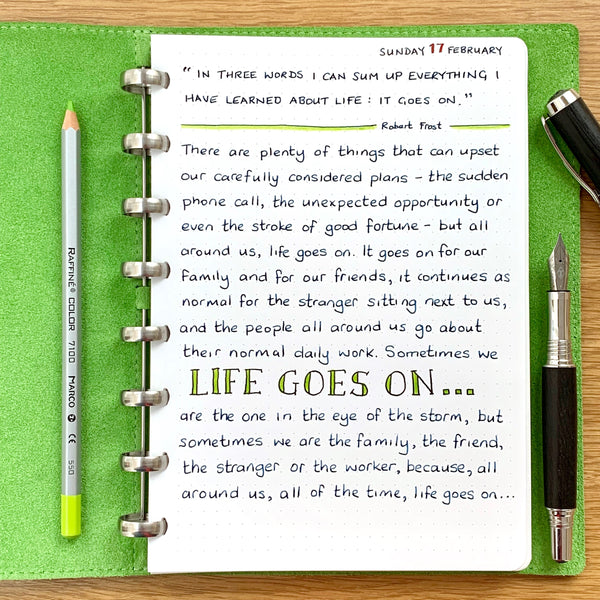 SUNDAY 17 FEBRUARY
" IN THREE WORDS I CAN SUM UP EVERYTHING I
HAVE LEARNED ABOUT LIFE : IT GOES ON. "
Robert Frost
There are plenty of things that can upset
our carefully considered plans - the sudden
phone call, the unexpected opportunity or
even the stroke of good fortune - but all
around us, life goes on. It goes on for our
family and for our friends, it continues as
normal for the stranger sitting next to us,
and the people all around us go about
their normal daily work. Sometimes we
LIFE GOES ON...
are the one in the eye of the storm, but
sometimes we are the family, the friend,
the stranger or the worker, because, all
around us, all of the time, life goes on...
RAFFINÉ® COLOR 7100 MARCO CE 550